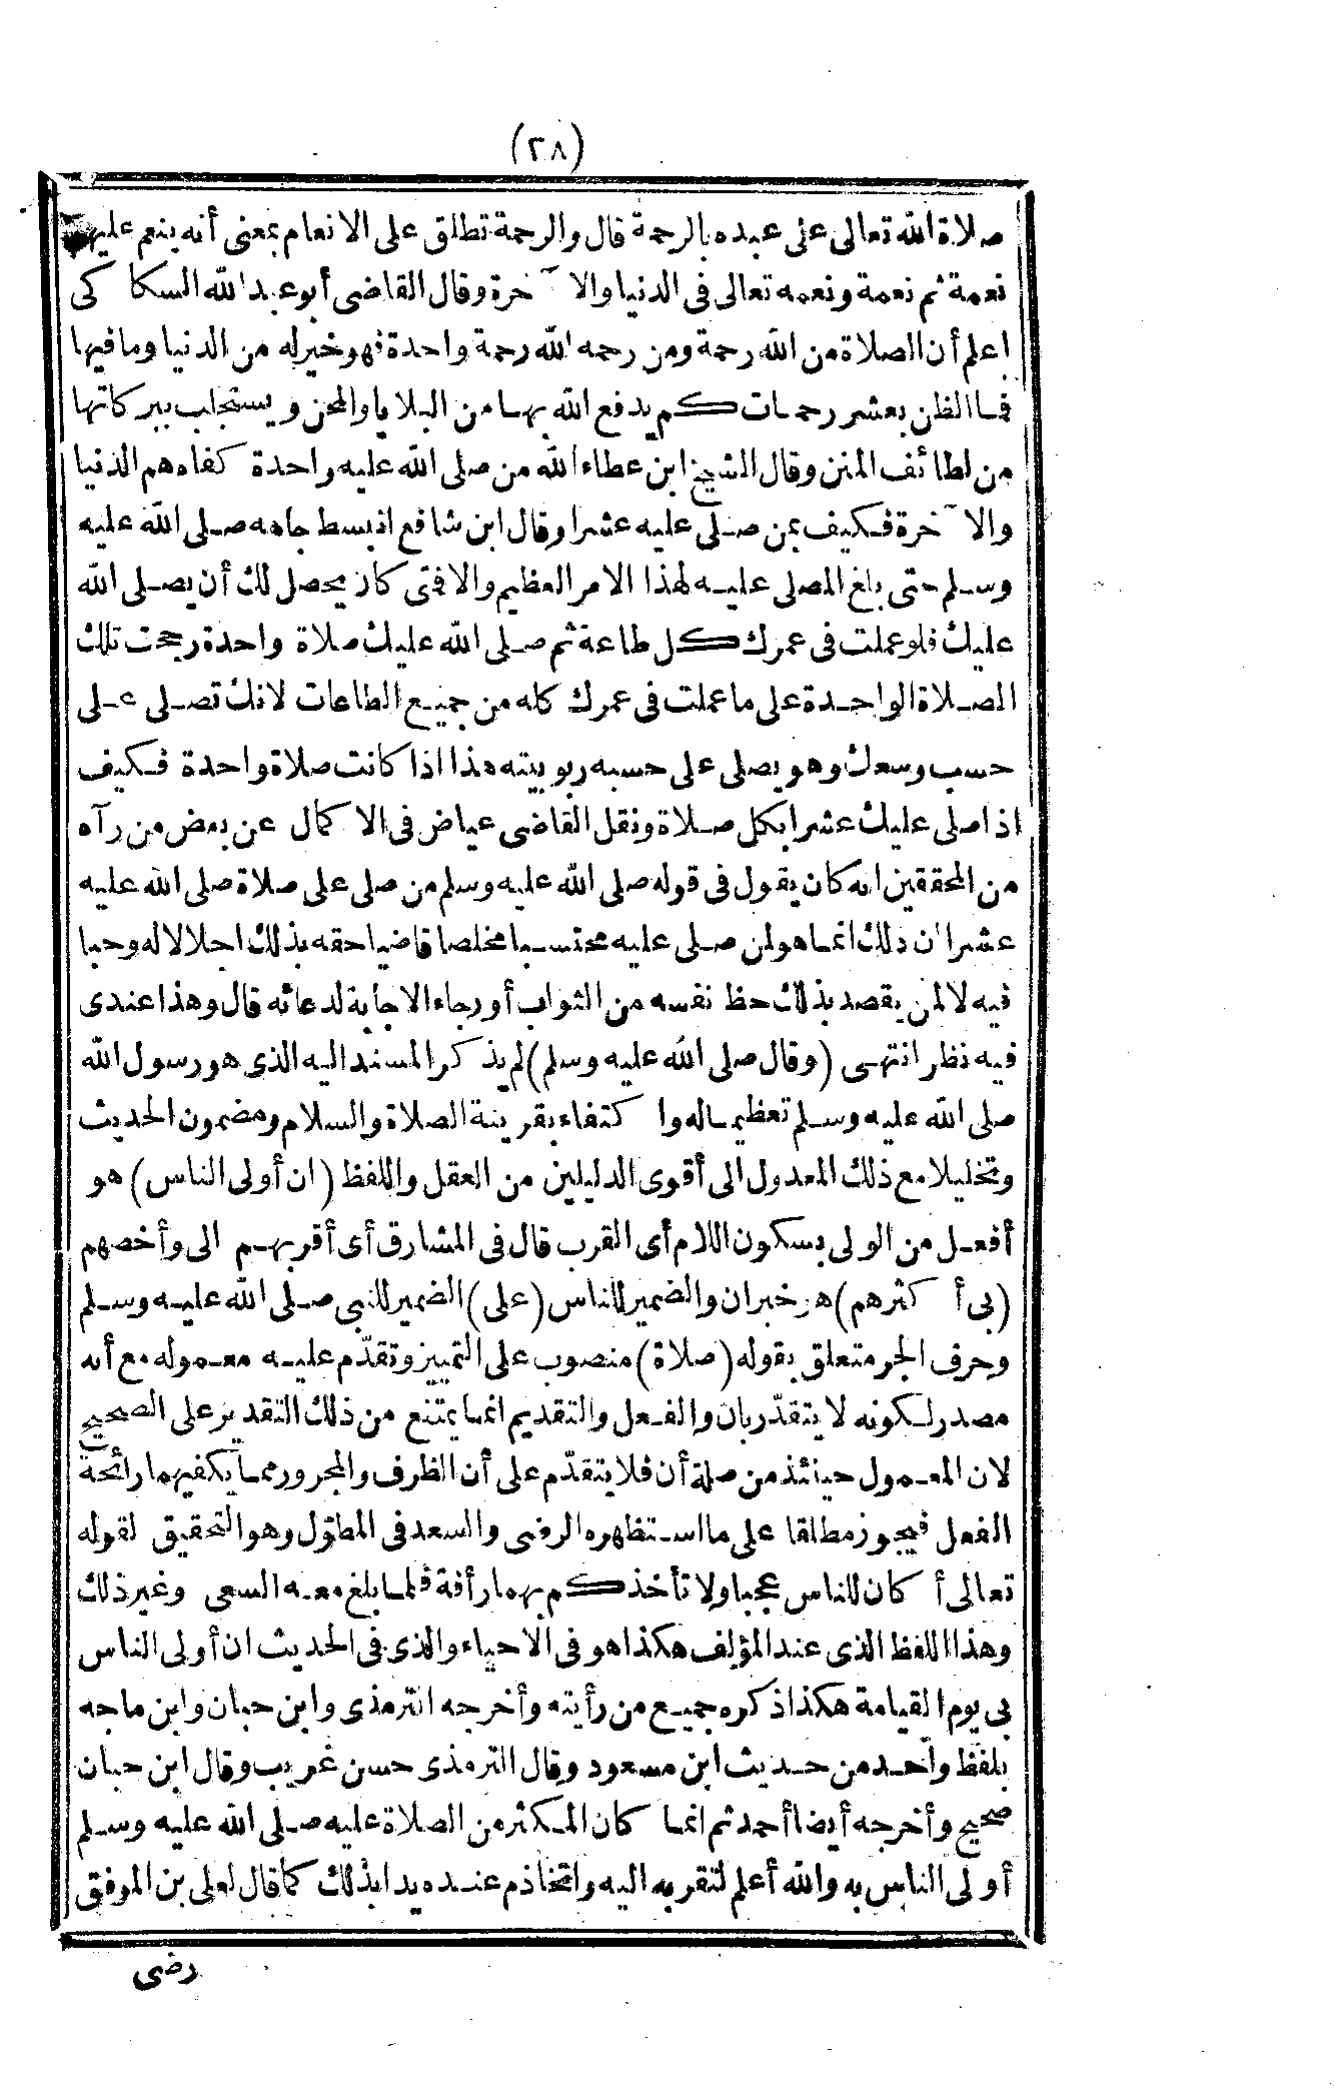 (٢٨)
صلاة الله تعالى على عبده بالرحمة قال والرحمة تطلق على الانعام بمعنى أنه ينعم عليهم
نعمة ثم نعمة ونعمه تعالى في الدنيا والآخرة وقال القاضى أبو عبد الله السكاكى
اعلم أن الصلاة من الله رحمة ومن رحمه الله رحمة واحدة فهو خير له من الدنيا وما فيها
فما الظن بعشر رحمات كم يدفع الله بها من البلايا والمحن ويستجلب ببركاتها
من لطائف المنن وقال الشيخ ابن عطاء الله من صلى الله عليه واحدة كفاه هم الدنيا
والآخرة فكيف بمن صلى عليه عشرا وقال ابن شافع انبسط جاهه صلى الله عليه
وسلم حتى بلغ المصلى عليه لهذا الامر العظيم والا فمتى كان يحصل لك أن يصلى الله
عليك فلو عملت في عمرك كل طاعة ثم صلى الله عليك صلاة واحدة رجحت تلك
الصلاة الواحدة على ما عملت في عمرك كله من جميع الطاعات لانك تصلى على
حسب وسعك وهو يصلى على حسب ربوبيته هذا اذا كانت صلاة واحدة فكيف
اذا صلى عليك عشرا بكل صلاة ونقل القاضى عياض في الاكمال عن بعض من رآه
من المحققين انه كان يقول في قوله صلى الله عليه وسلم من صلى على صلاة صلى الله عليه
عشرا ان ذلك انما هو لمن صلى عليه محتسبا مخلصا قاضيا حقه بذلك اجلالا له وحبا
فيه لا لمن يقصد بذلك حظ نفسه من الثواب أو رجاء الاجابة لدعائه قال وهذا عندى
فيه نظر انتهى (وقال صلى الله عليه وسلم) لم يذكر المسند اليه الذى هو رسول الله
صلى الله عليه وسلم تعظيما له واكتفاء بقرينة الصلاة والسلام ومضمون الحديث
وتخليلا مع ذلك المعدول الى أقوى الدليلين من العقل واللفظ (ان أولى الناس) هو
أفعل من الولى بسكون اللام أى القرب قال في المشارق أى أقربهم الى وأخصهم
(بى أكثرهم) هو خبر ان والضمير للناس (على) الضمير للنبي صلى الله عليه وسلم
وحرف الجر متعلق بقوله (صلاة) منصوب على التمييز وتقدّم عليه معموله مع أنه
مصدر لكونه لا يتقدّر بان والفعل والتقديم انما يمتنع من ذلك التقدير على الصحيح
لان المعمول حينئذ من صلة أن فلا يتقدّم على أن الظرف والمجرور مما يكفيهما رائحة
الفعل فيجوز مطلقا على ما استظهره الرضى والسعد في المطوّل وهو التحقيق لقوله
تعالى أكان للناس عجبا ولا تأخذكم بهما رأفة فلما بلغ معه السعى وغير ذلك
وهذا اللفظ الذى عند المؤلف هكذا هو في الاحياء والذى في الحديث ان أولى الناس
بى يوم القيامة هكذا ذكره جميع من رأيته وأخرجه الترمذى وابن حبان وابن ماجه
بلفظ واحد من حديث ابن مسعود وقال الترمذى حسن غريب وقال ابن حبان
صحيح وأخرجه أيضا أحمد ثم انما كان المكثر من الصلاة عليه صلى الله عليه وسلم
أولى الناس به والله أعلم لتقربه اليه واتخاذه عنده يدا بذلك كما قال لعلى بن الموفق
رضى